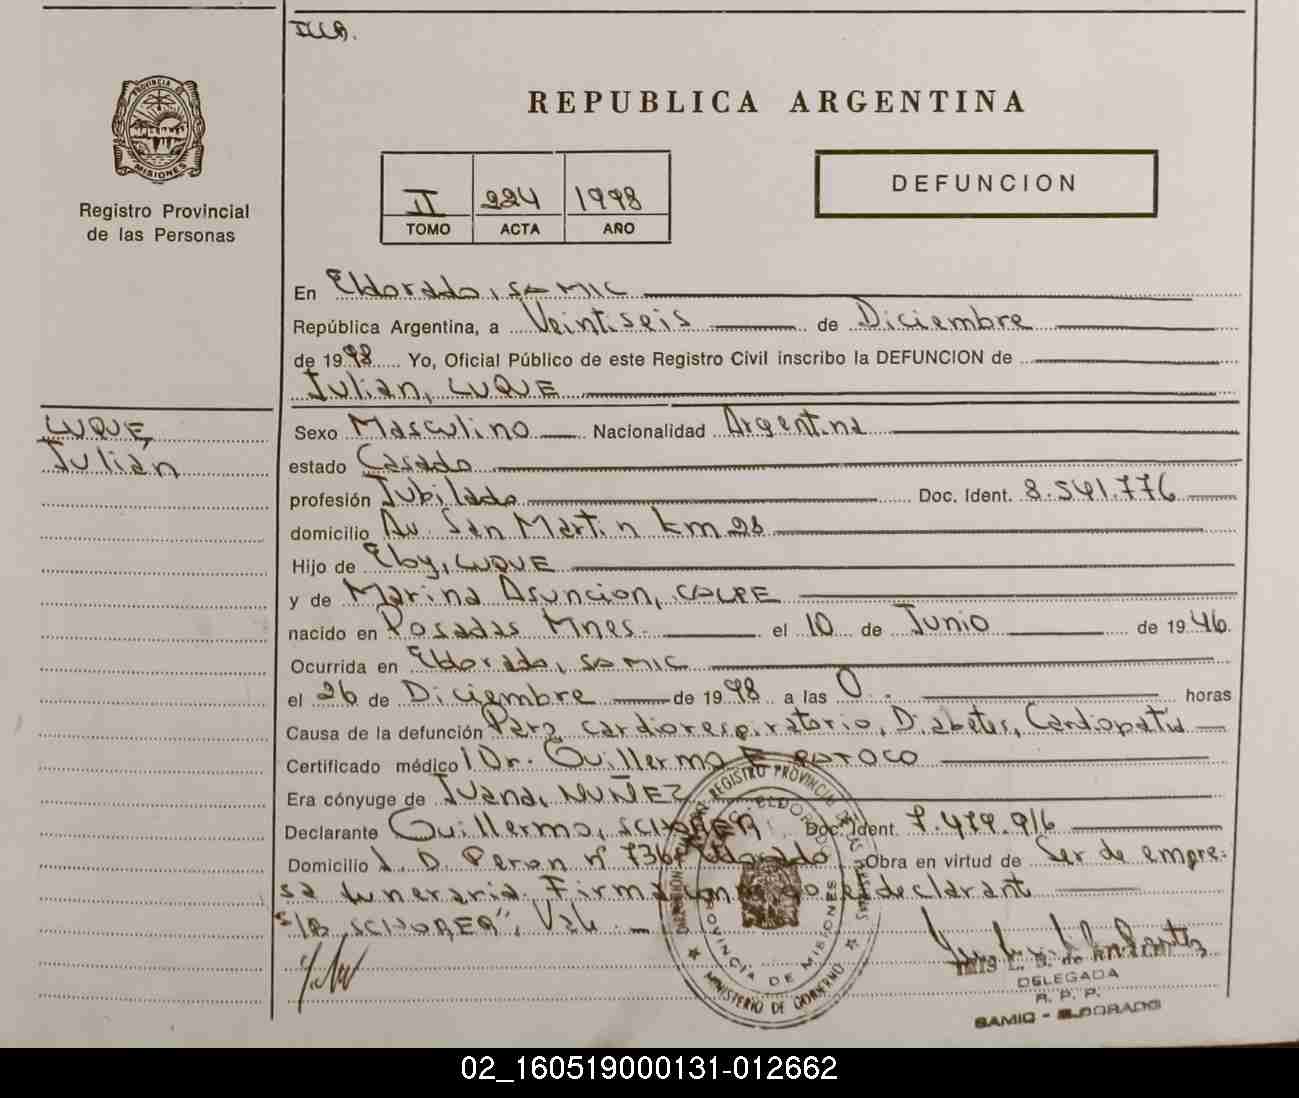 REPUBLICA ARGENTINA
PROVINCIA DE
MISIONES
Registro Provincial
de las Personas
II 224 1998
TOMO ACTA AÑO
DEFUNCION
En Eldorado, SAMIC
República Argentina, a Veintiseis de Diciembre
de 1998 Yo, Oficial Público de este Registro Civil inscribo la DEFUNCION de
Julian, LUQUE
LUQUE,
Julián
Sexo Masculino Nacionalidad Argentina
estado Casado
profesión Jubilado Doc. Ident. 8.541.776
domicilio Av. San Martin km 28
Hijo de Eby, LUQUE
y de Marina Asuncion, COLPE
nacido en Posadas Mnes. el 10 de Junio de 1946.
Ocurrida en Eldorado, SAMIC
el 26 de Diciembre de 1998 a las 0. horas
Causa de la defunción Paro cardiorespiratorio, Diabetes, Cardiopatia
Certificado médico Dr. Guillermo
Era cónyuge de Juana, NUÑEZ
Declarante Guillermo, SCHORER Doc. Ident. 7.479.916
Domicilio J. D. Peron nº 736 Eldorado Obra en virtud de Ser de empre-
sa funeraria. Firma conmigo el declarant
"LB SCHORER", Vale
REGISTRO PROVINCIAL DE LAS PERSONAS
ELDORADO
PROVINCIA DE MISIONES
MINISTERIO DE GOBIERNO
DELEGADA
R. P. P.
SAMIC - ELDORADO
02_160519000131-012662